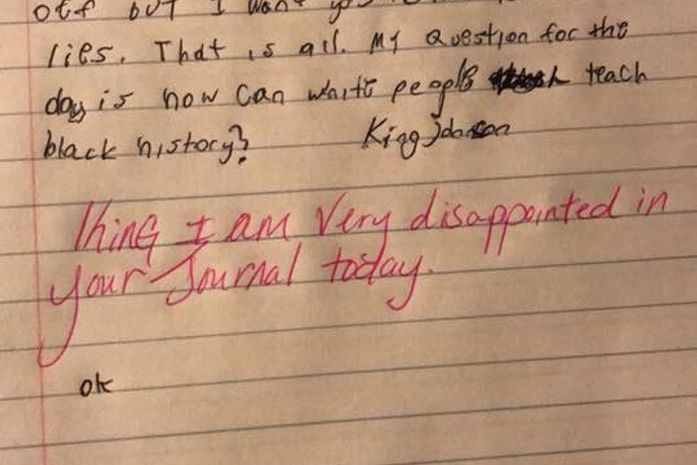 off but I want
lies. That is all. My Question for the
day is how can white people teach
black history? King Johnson
King I am Very disappointed in
your Journal today.
ok